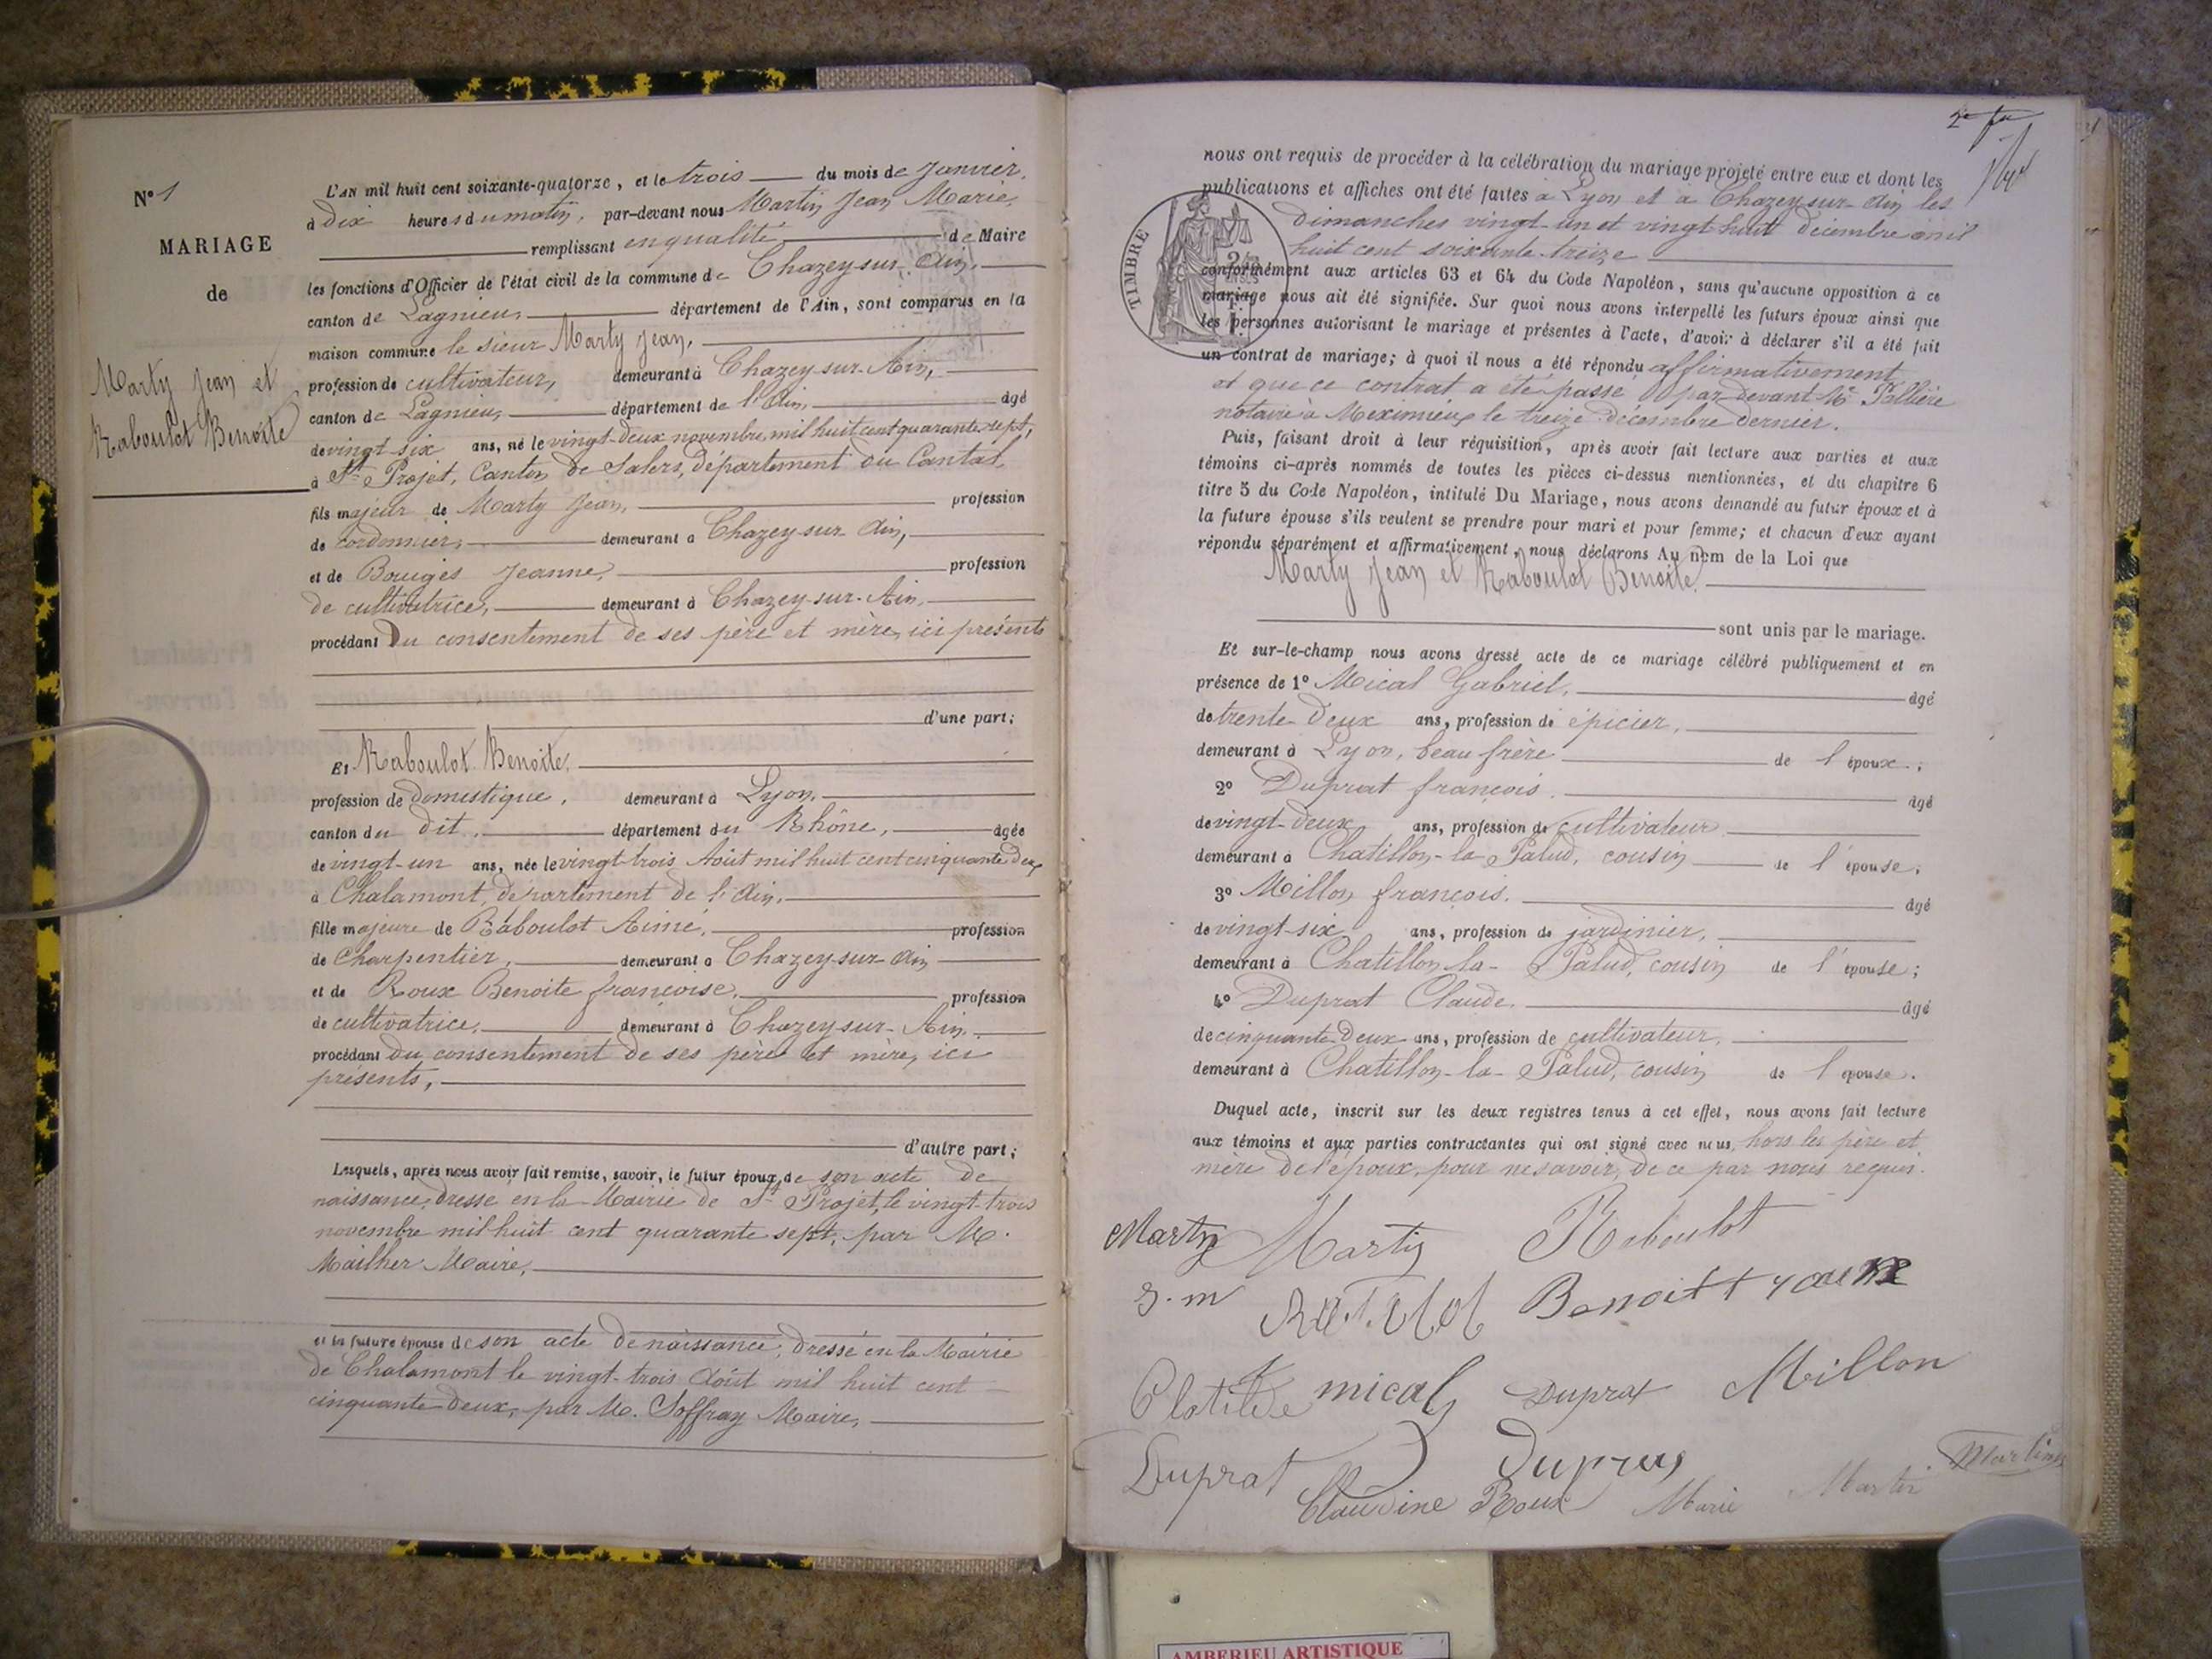 N° 1
MARIAGE
de
Marty Jean et
Raboulot Benoite
L'AN mil huit cent soixante-quatorze, et le trois du mois de Janvier,
à dix heures du matin, par-devant nous Martin Jean Marie,
remplissant en qualité de Maire
les fonctions d'Officier de l'état civil de la commune de Chazey-sur-Ain,
canton de Lagnieu, département de l'Ain, sont comparus en la
maison commune le sieur Marty Jean,
profession de cultivateur, demeurant à Chazey-sur-Ain,
canton de Lagnieu, département de l'Ain, âgé
de vingt-six ans, né le vingt-deux novembre mil huit cent quarante-sept,
à St Projet, Canton de Salers, département du Cantal,
fils majeur de Marty Jean, profession
de cordonnier, demeurant à Chazey-sur-Ain,
et de Bouiges Jeanne, profession
de cultivatrice, demeurant à Chazey-sur-Ain,
procédant du consentement de ses père et mère, ici présents
d'une part;
Et Raboulot Benoite,
profession de domestique, demeurant à Lyon,
canton du dit, département du Rhône, âgée
de vingt-un ans, née le vingt-trois Août mil huit cent cinquante deux
à Chalamont, département de l'Ain,
fille majeure de Raboulot Aimé, profession
de Charpentier, demeurant à Chazey-sur-Ain
et de Roux Benoite françoise, profession
de cultivatrice, demeurant à Chazey-sur-Ain,
procédant du consentement de ses père et mère, ici
présents,
d'autre part;
Lesquels, après nous avoir fait remise, savoir, le futur époux, de son acte de
naissance, dressé en la Mairie de St Projet, le vingt-trois
novembre mil huit cent quarante sept, par M.
Mailher Maire,
et la future épouse de son acte de naissance, dressé en la Mairie
de Chalamont le vingt-trois Août mil huit cent
cinquante-deux, par M. Soffray Maire,
nous ont requis de procéder à la célébration du mariage projeté entre eux et dont les
publications et affiches ont été faites à Lyon et à Chazey-sur-Ain les
dimanches vingt-un et vingt-huit décembre mil
huit cent soixante-treize
TIMBRE
conformément aux articles 63 et 64 du Code Napoléon, sans qu'aucune opposition à ce
mariage nous ait été signifiée. Sur quoi nous avons interpellé les futurs époux ainsi que
les personnes autorisant le mariage et présentes à l'acte, d'avoir à déclarer s'il a été fait
un contrat de mariage; à quoi il nous a été répondu affirmativement
et que ce contrat a été passé par-devant Me
notaire à Meximieux le treize décembre dernier.
Puis, faisant droit à leur réquisition, après avoir fait lecture aux parties et aux
témoins ci-après nommés de toutes les pièces ci-dessus mentionnées, et du chapitre 6
titre 5 du Code Napoléon, intitulé Du Mariage, nous avons demandé au futur époux et à
la future épouse s'ils veulent se prendre pour mari et pour femme; et chacun d'eux ayant
répondu séparément et affirmativement, nous déclarons Au nom de la Loi que
Marty Jean et Raboulot Benoite
sont unis par le mariage.
Et sur-le-champ nous avons dressé acte de ce mariage célébré publiquement et en
présence de 1° Mical Gabriel, âgé
de trente-deux ans, profession de épicier,
demeurant à Lyon, beau frère de l'époux;
2° Duprat françois. âgé
de vingt-deux ans, profession de cultivateur
demeurant à Chatillon-la-Palud, cousin de l'épouse;
3° Millon françois. âgé
de vingt-six ans, profession de jardinier,
demeurant à Chatillon-la-Palud, cousin de l'épouse;
4° Duprat Claude. âgé
de cinquante-deux ans, profession de cultivateur,
demeurant à Chatillon-la-Palud, cousin de l'épouse.
Duquel acte, inscrit sur les deux registres tenus à cet effet, nous avons fait lecture
aux témoins et aux parties contractantes qui ont signé avec nous, hors les père et
mère de l'époux, pour ne savoir, de ce par nous requis.
Marty Marty Raboulot
Clotilde mical Duprat Millon
Duprat
Claudine Roux Marie Martin Martin
AMBERIEU ARTISTIQUE